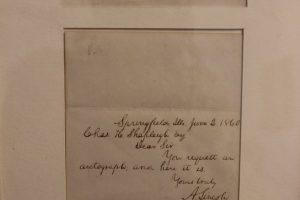 Springfield, Ills. June 2, 1860
Chas. H. Shapleigh Esq
Dear Sir
You request an
autograph, and here it is
Yours truly
A. Lincoln